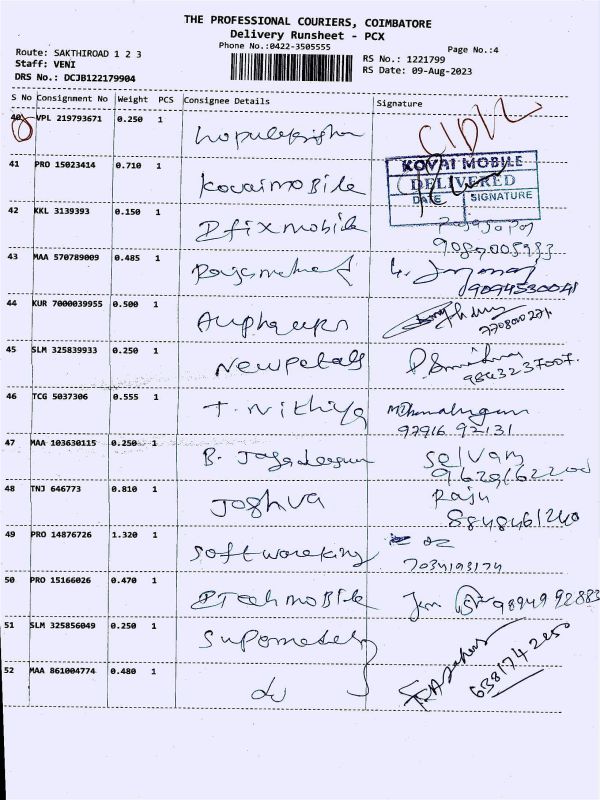 THE PROFESSIONAL COURIERS, COIMBATORE
Delivery Runsheet - PCX
Phone No.:0422-3505555
Page No.:4
Route: SAKTHIROAD 1 2 3
Staff: VENI
DRS No.: DCJB122179904
RS No.: 1221799
RS Date: 09-Aug-2023
S No Consignment No Weight PCS Consignee Details Signature
40 VPL 219793671 0.250 1
41 PRO 15023414 0.710 1 Kovaimobile
KOVAI MOBILE
DELIVERED
DATE SIGNATURE
42 KKL 3139393 0.150 1 Dfixmobile
43 MAA 570789009 0.485 1
9094530041
44 KUR 7000039955 0.500 1
45 SLM 325839933 0.250 1 Newpetals
9843237007.
46 TCG 5037306 0.555 1 T. Nithiya
97916 92131
47 MAA 103630115 0.250 1 B. Selvam
9629162200
48 TNJ 646773 0.810 1 Joshva Raju
8848461240
49 PRO 14876726 1.320 1 Softwareking
7034193174
50 PRO 15166026 0.470 1 mobile 9894992883
51 SLM 325856049 0.250 1
52 MAA 861004774 0.480 1 do
6381742250